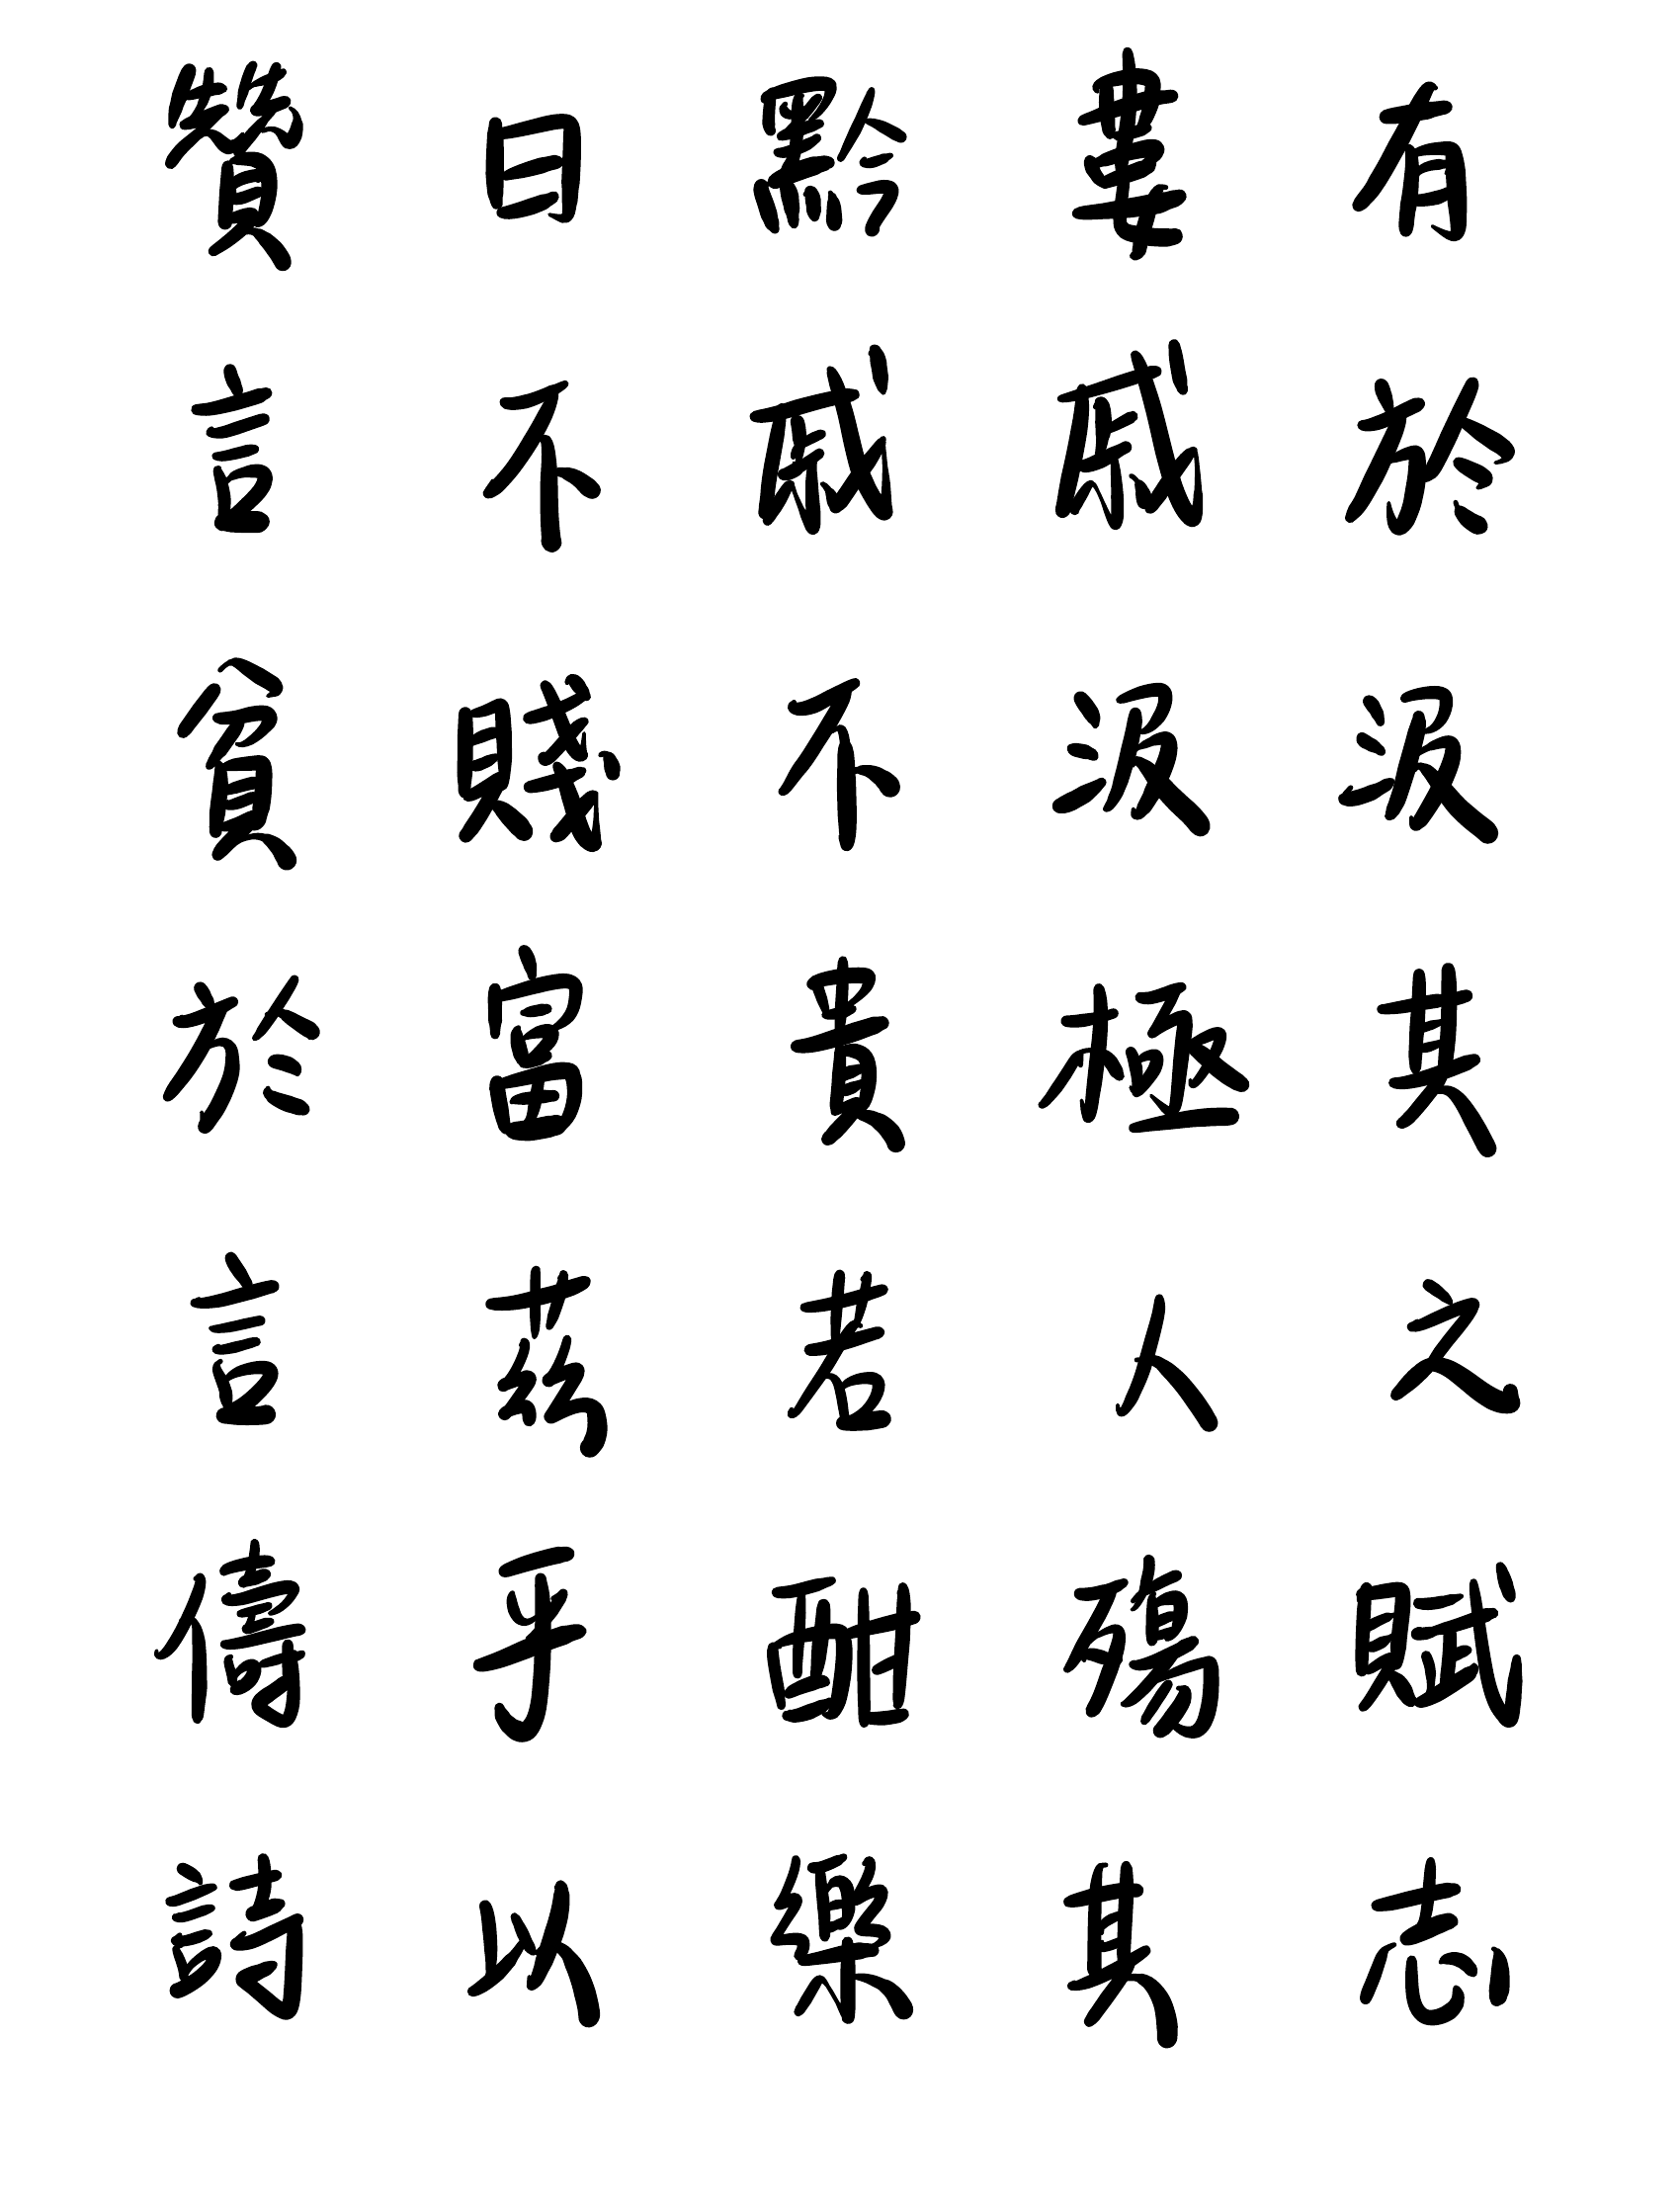 贊曰黔婁有
言不戚戚於
貧賤不汲汲
於富貴極其
言茲若人之
儔乎酣殤賦
詩以樂其志